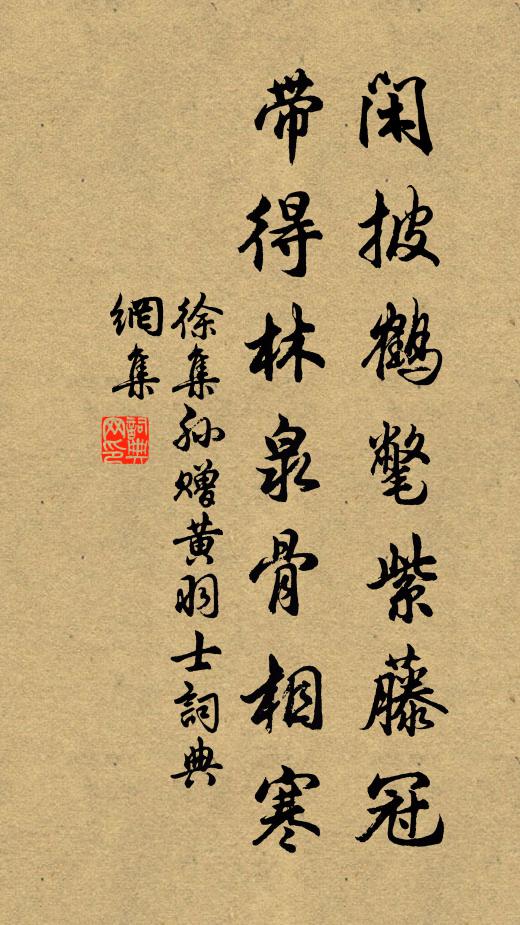 闲披鹤氅紫藤冠
带得林泉骨相寒
徐集孙赠黄羽士詞典
網集
詞典
网印